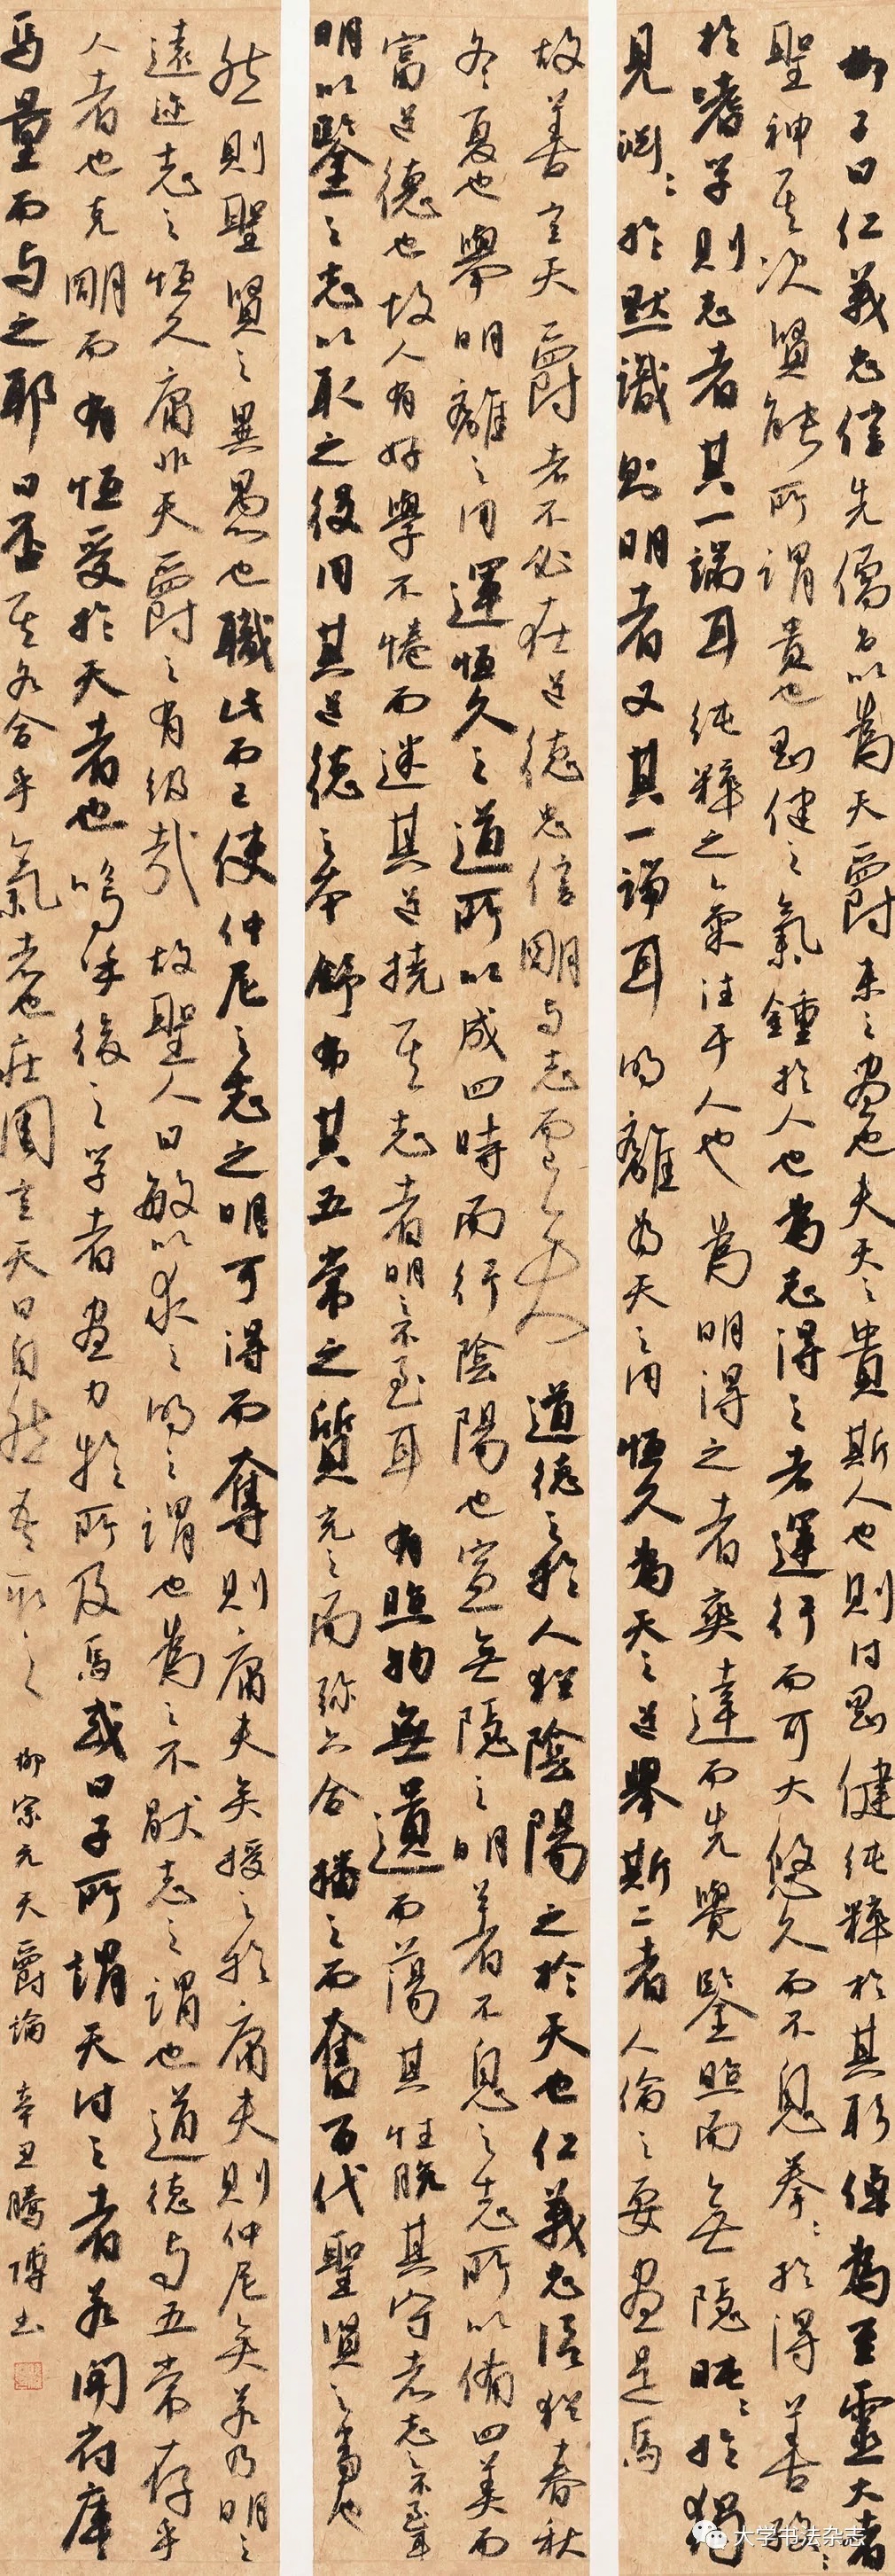 柳子曰仁義忠信先儒名以為天爵未之盡也夫天之貴斯人也則付剛健純粹於其躬倬為至靈大者
聖神其次賢能所謂貴也剛健之氣鍾於人也為志得之者運行而可大悠久而不息拳〻於得善孜〻
於嗜學則志者其一端耳純粹之氣注于人也為明得之者爽達而先覺鑒照而無隱盹〻於獨
見淵〻於默識則明者又其一端耳明離為天之用恒久為天之道舉斯二者人倫之要盡是焉
故善言天爵者不必在道德忠信明與志而已矣道德之於人猶陰陽之於天也仁義忠信猶春秋
冬夏也舉明離之用運恒久之道所以成四時而行陰陽也宣無隱之明著不息之志所以備四美而
富道德也故人有好學不惓而迷其道撓其志者明之不至耳有照物無遺而蕩其性脫其守者志之不至耳
明以鑒之志以取之役用其道德之本舒布其五常之質充之而彌六合播之而奮百代聖賢之事也
然則聖賢之異愚也職此而已使仲尼之志之明可得而奪則庸夫矣授之於庸夫則仲尼矣若乃明之
遠迩志之恒久庸非天爵之有級哉故聖人曰敏以求之明之謂也為之不厭志之謂也道德與五常存乎
人者也克明而有恒受於天者也嗚乎後之學者盡力於所及焉或曰子所謂天付之者若開府庫
焉量而與之耶曰否其各合乎氣者也莊周言天曰自然吾取之
柳宗元天爵論 辛丑騰博書
大学书法杂志